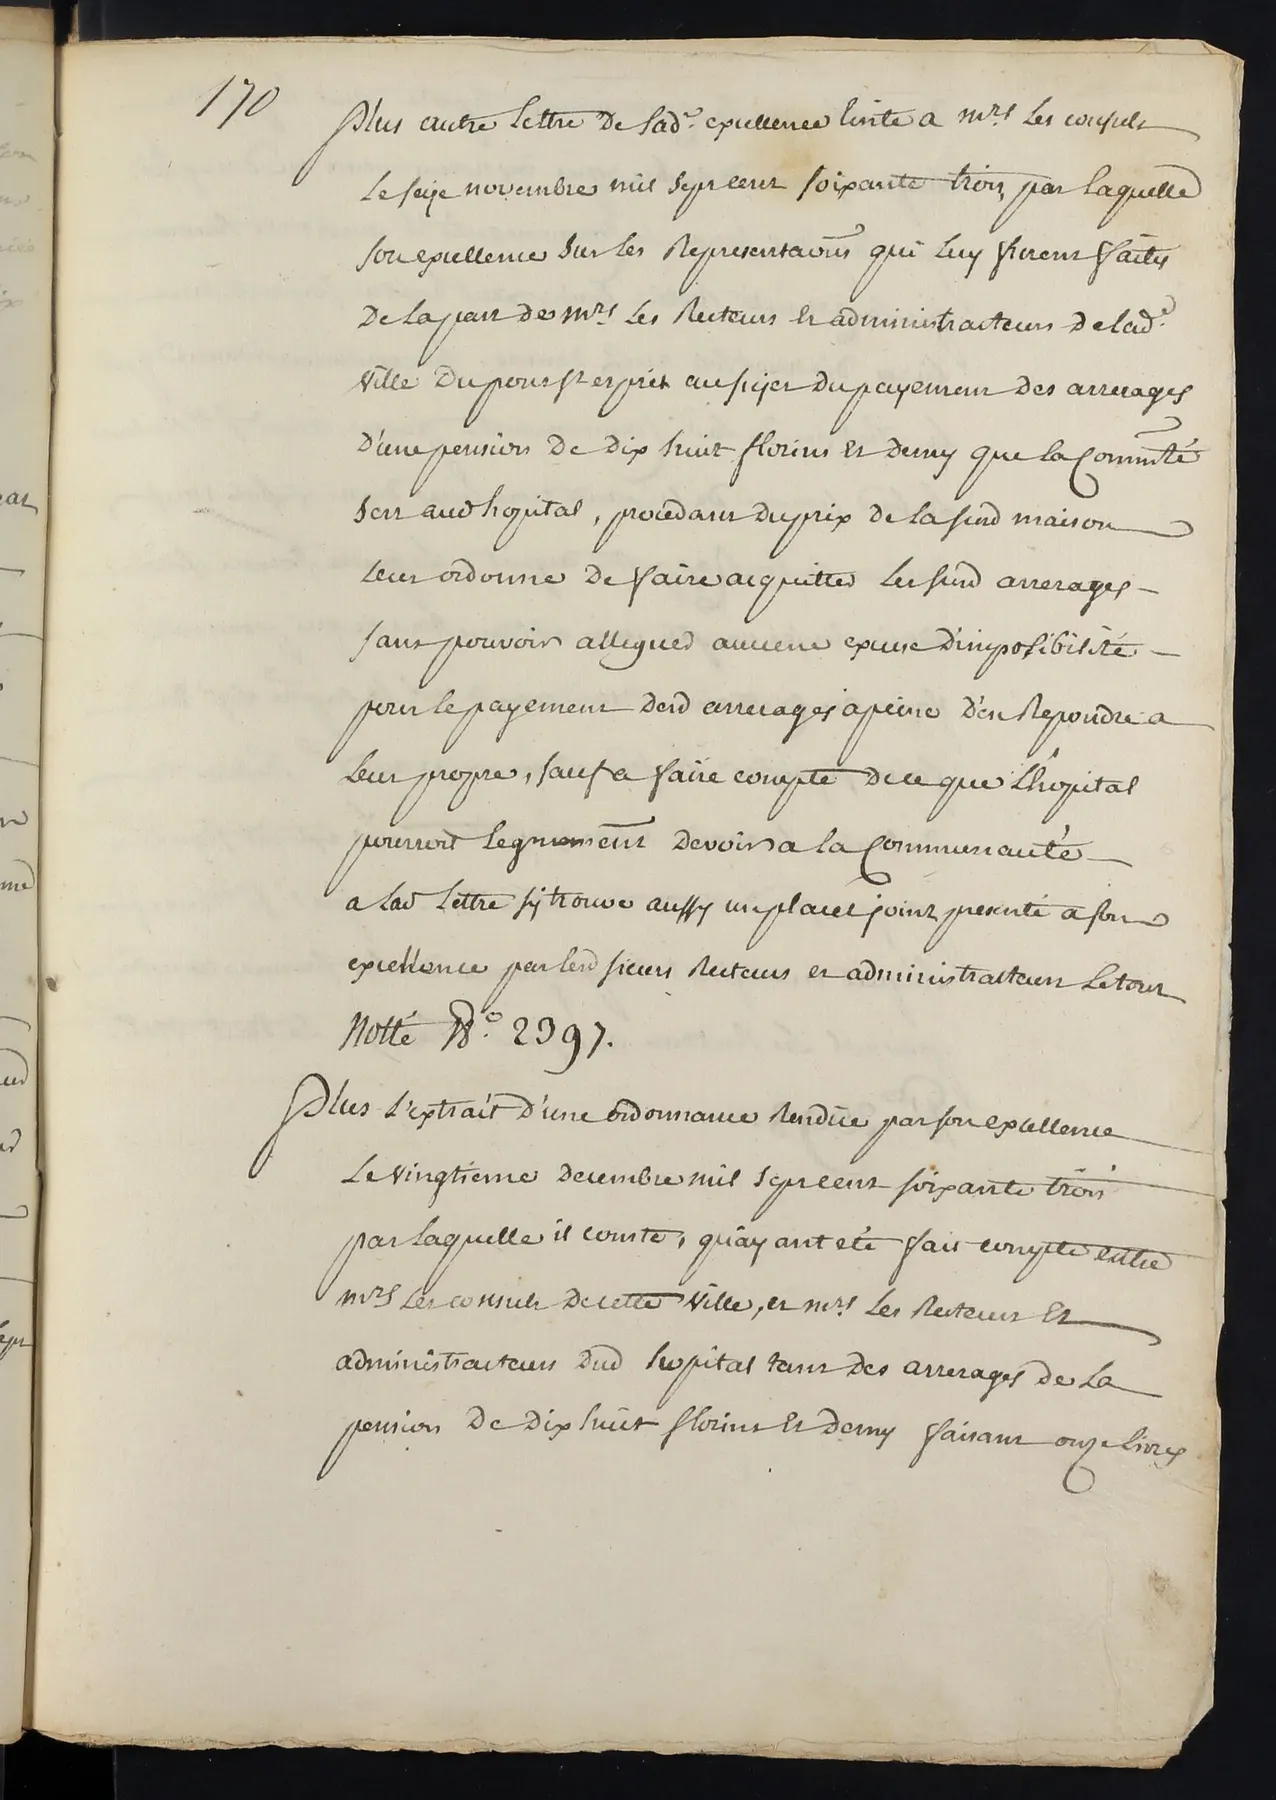 170
Plus autre Lettre De Lad.e excellence Ecrite a mrs Les consuls
Le seize novembre mil Sept cent soixante trois, par Laquelle
son excellence Sur Les Representaõns qui Luy furent faites
De La part des mrs Les Recteurs Et administrateurs De Lad.e
Ville Du pont st esprit au sujet Du payement Des arrerages
D'une pension De Dix huit florins Et Demy que La Commũté
Sert aud hopital, procedant Du prix De La susd maison
Leur ordonne De faire acquitter Les susd arrerages
sans pouvoir alleguer aucune excuse D'imposibilité
pour Le payement Desd arrerages a peine D'en Repondre a
Leur propre, sauf a faire compte De ce que L'hopital
pourroit Devoir a La Communauté
a Lad Lettre sy trouve aussy un placet joint presenté a son
excellence par Lesd sieurs Recteurs et administrateurs Le tout
Notté N.o 2397.
Plus L'extrait D'une ordonnance Rendüe par son excellence
Le vingtieme Decembre mil Sept cent soixante trois
par Laquelle il conste, qu'ay ant eté fait compte entre
mrs Les consuls De cette Ville, et mrs Les Recteurs Et
administrateurs Dud hopital tant Des arrerages De La
pension De Dix huit florins Et Demy faisant onze Livres